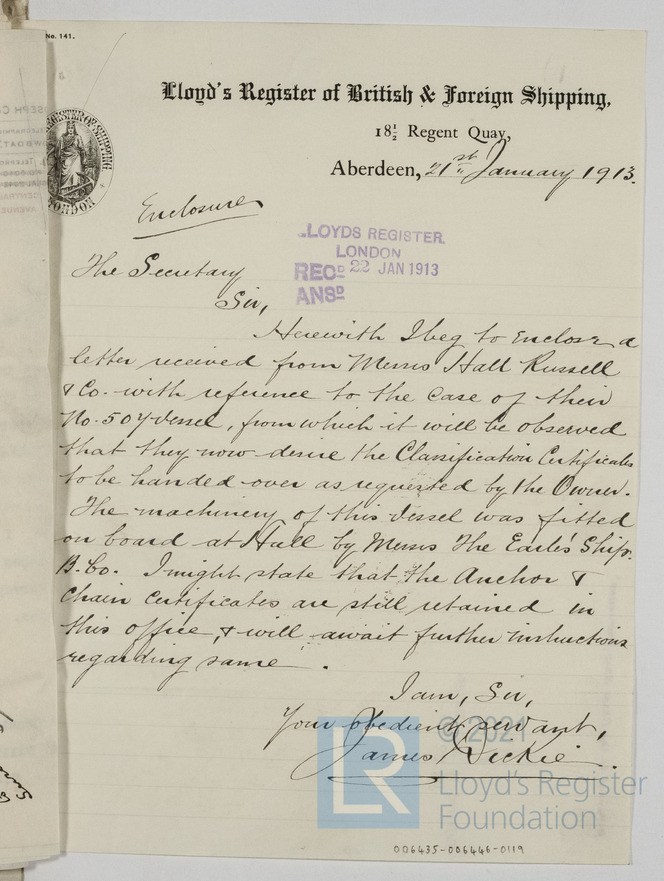 No. 141.
Lloyd's Register of British & Foreign Shipping,
18½ Regent Quay,
Aberdeen, 21st January 1913.
LONDON
Enclosure
LLOYDS REGISTER.
LONDON
RECD 22 JAN 1913
ANSD
The Secretary
Sir,
Herewith I beg to enclose a
letter received from Messrs Hall Russell
& Co. with reference to the case of their
No. 507 vessel, from which it will be observed
that they now desire the Classification Certificates
to be handed over as requested by the Owner.
The machinery of this vessel was fitted
on board at Hull by Messrs The Earle's Ship.
B. Co. I might state that the Anchor &
Chain Certificates are still retained in
this office, & will await further instructions
regarding same.
I am, Sir,
Your obedient servant,
James Dickie.
© 2021
LR
Lloyd's Register
Foundation
006435-006446-0119